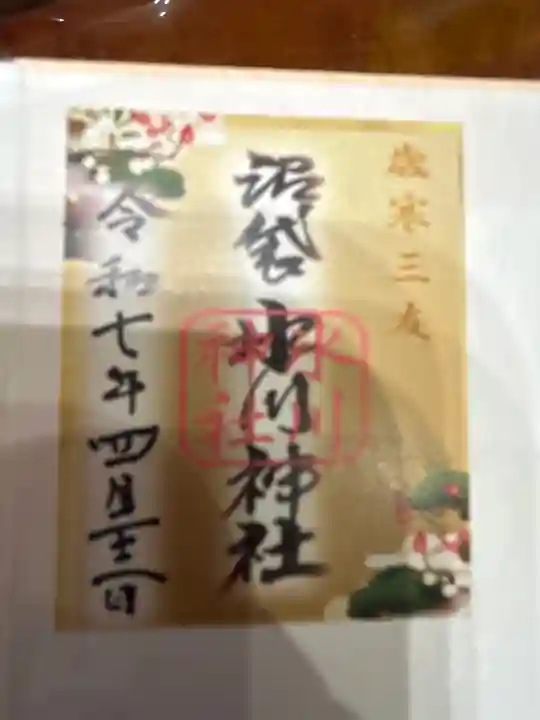 歳寒三友
沼袋氷川神社
氷川神社
令和七年四月